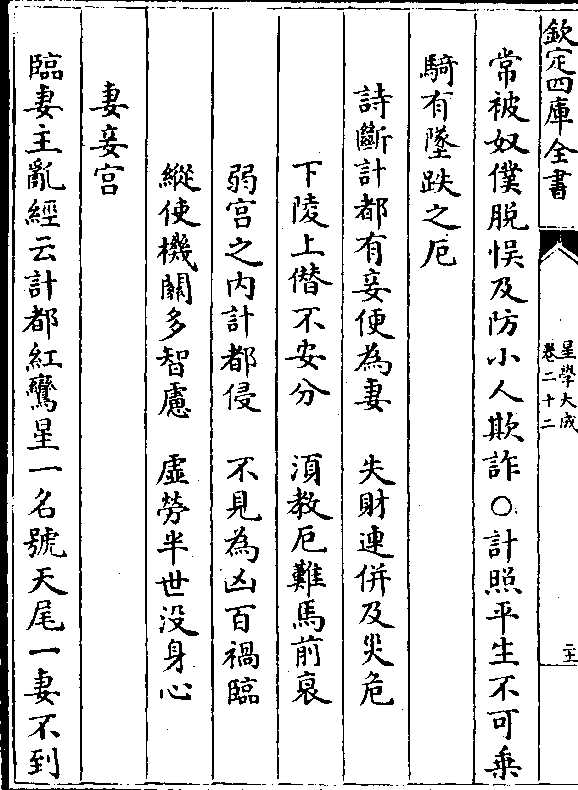 欽定四庫全書
星學大成
卷二十二
二十五
常被奴僕脫悞及防小人欺詐○計照平生不可乗
騎有墜跌之厄
詩斷計都有妾便為妻　失財連併及災危
下陵上僭不安分　湏教厄難馬前哀
弱宫之内計都侵　不見為凶百禍臨
縱使機關多智慮　虛勞半世没身心
妻妾宫
臨妻主亂經云計都紅鸞星一名號天尾一妻不到